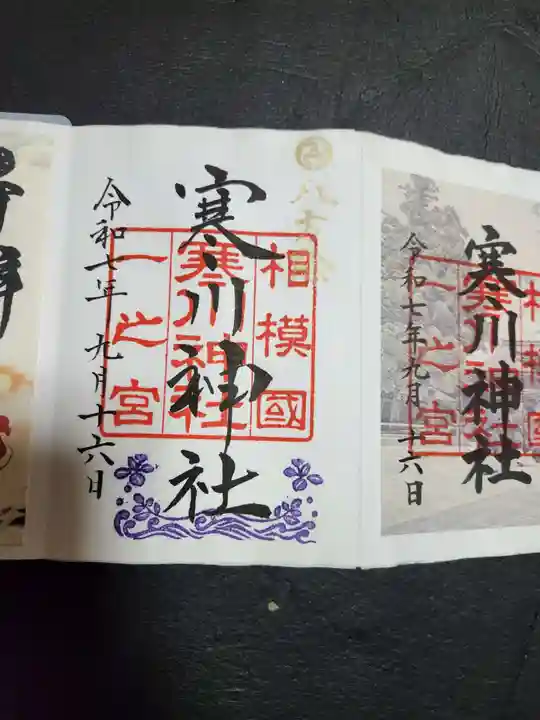 寒川神社
相模國
寒川神社
一之宮
令和七年 九月十六日
寒川神社
相模國
一之宮
令和七年九月十六日
拝